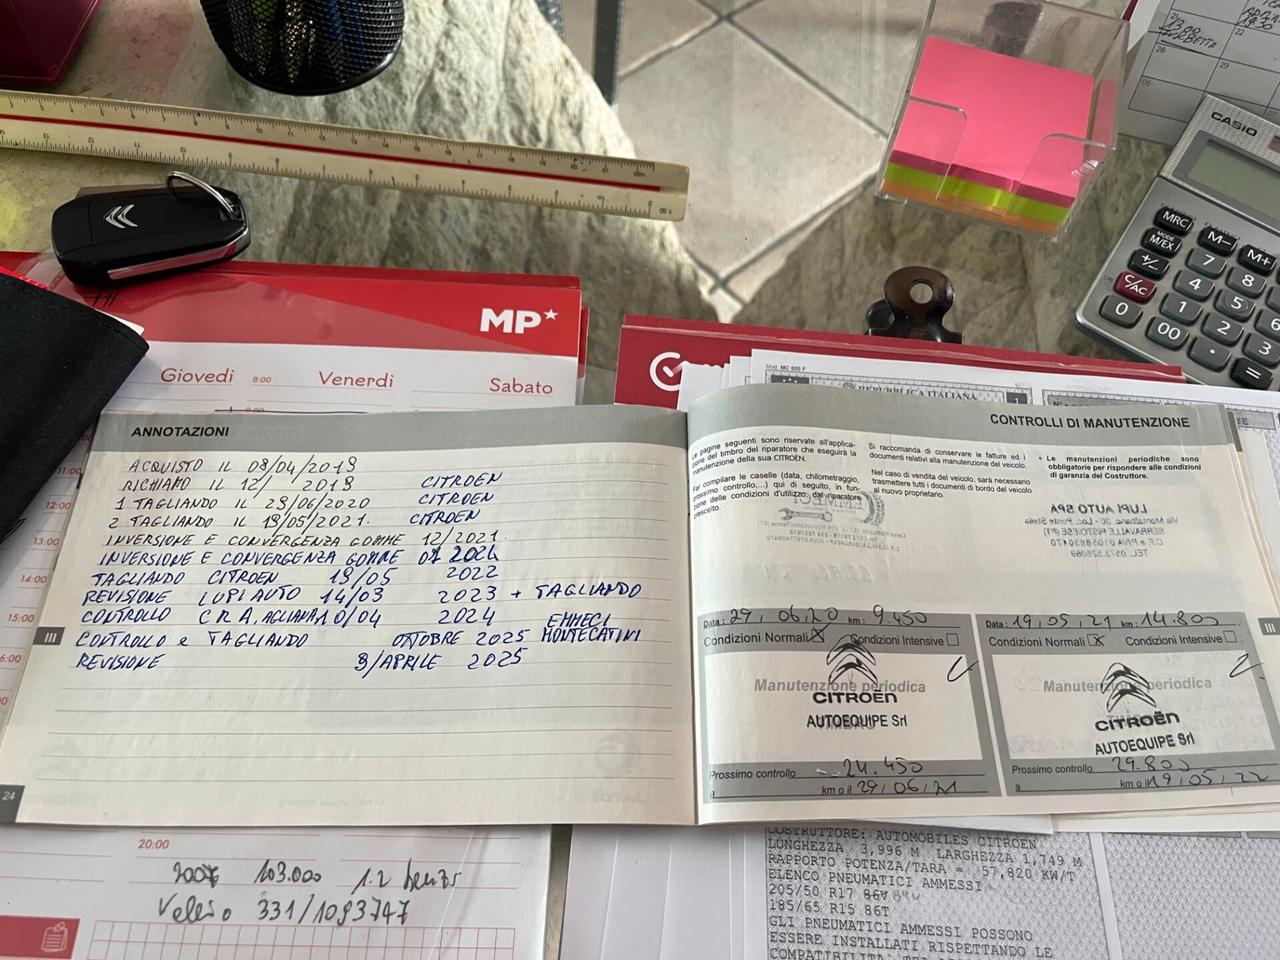 CASIO
MRC
M-
M+
MODE
M/EX
7
8
+/-
4
5
6
C/AC
1
2
3
0
00
.
=
22
28
29
05
MP*
Giovedì 8:00 Venerdì Sabato
Mod. MC 820 F
REPUBBLICA ITALIANA
ANNOTAZIONI
ACQUISTO IL 08/04/2019
RICHIAMO IL 12/ 2019 CITROEN
1 TAGLIANDO IL 29/06/2020 CITROEN
2 TAGLIANDO IL 19/05/2021. CITROEN
INVERSIONE E CONVERGENZA GOMME 12/2021.
INVERSIONE E CONVERGENZA GOMME 07 2024
TAGLIANDO CITROEN 19/05 2022
REVISIONE LUPI AUTO 14/03 2023 + TAGLIANDO
CONTROLLO C.R.A. AGLIANA 10/04 2024 EMMECI
CONTROLLO e TAGLIANDO OTTOBRE 2025 MONTECATINI
REVISIONE 9/APRILE 2025
III
24
CONTROLLI DI MANUTENZIONE
Le pagine seguenti sono riservate all'applica-
zione del timbro del riparatore che eseguirà la
manutenzione della sua CITROËN.
Far compilare le caselle (data, chilometraggio,
prossimo controllo,...) qui di seguito, in fun-
zione delle condizioni d'utilizzo, dal riparatore
prescelto.
Si raccomanda di conservare le fatture ed i
documenti relativi alla manutenzione del veicolo.
Nel caso di vendita del veicolo, sarà necessario
trasmettere tutti i documenti di bordo del veicolo
al nuovo proprietario.
• Le manutenzioni periodiche sono
obbligatorie per rispondere alle condizioni
di garanzia del Costruttore.
EMMECI
LUPI AUTO SPA
Data: 29, 06, 20 km: 9.450
Condizioni Normali Condizioni Intensive
Manutenzione periodica
CITROËN
AUTOEQUIPE Srl
Prossimo controllo 24.450
a km o il 29, 06, 21
Data: 19, 05, 21 km: 14.800
Condizioni Normali Condizioni Intensive
Manutenzione periodica
CITROËN
AUTOEQUIPE Srl
Prossimo controllo 29.800
a km o il 19, 05, 22
III
11:00
12:00
14:00
15:00
20:00
103.000 1.2
331/1093747
COSTRUTTORE: AUTOMOBILES CITROEN
LUNGHEZZA 3,996 M LARGHEZZA 1,749 M
RAPPORTO POTENZA/TARA = 57,820 KW/T
ELENCO PNEUMATICI AMMESSI
205/50 R17 86V
185/65 R15 86T
GLI PNEUMATICI AMMESSI POSSONO
ESSERE INSTALLATI RISPETTANDO LE